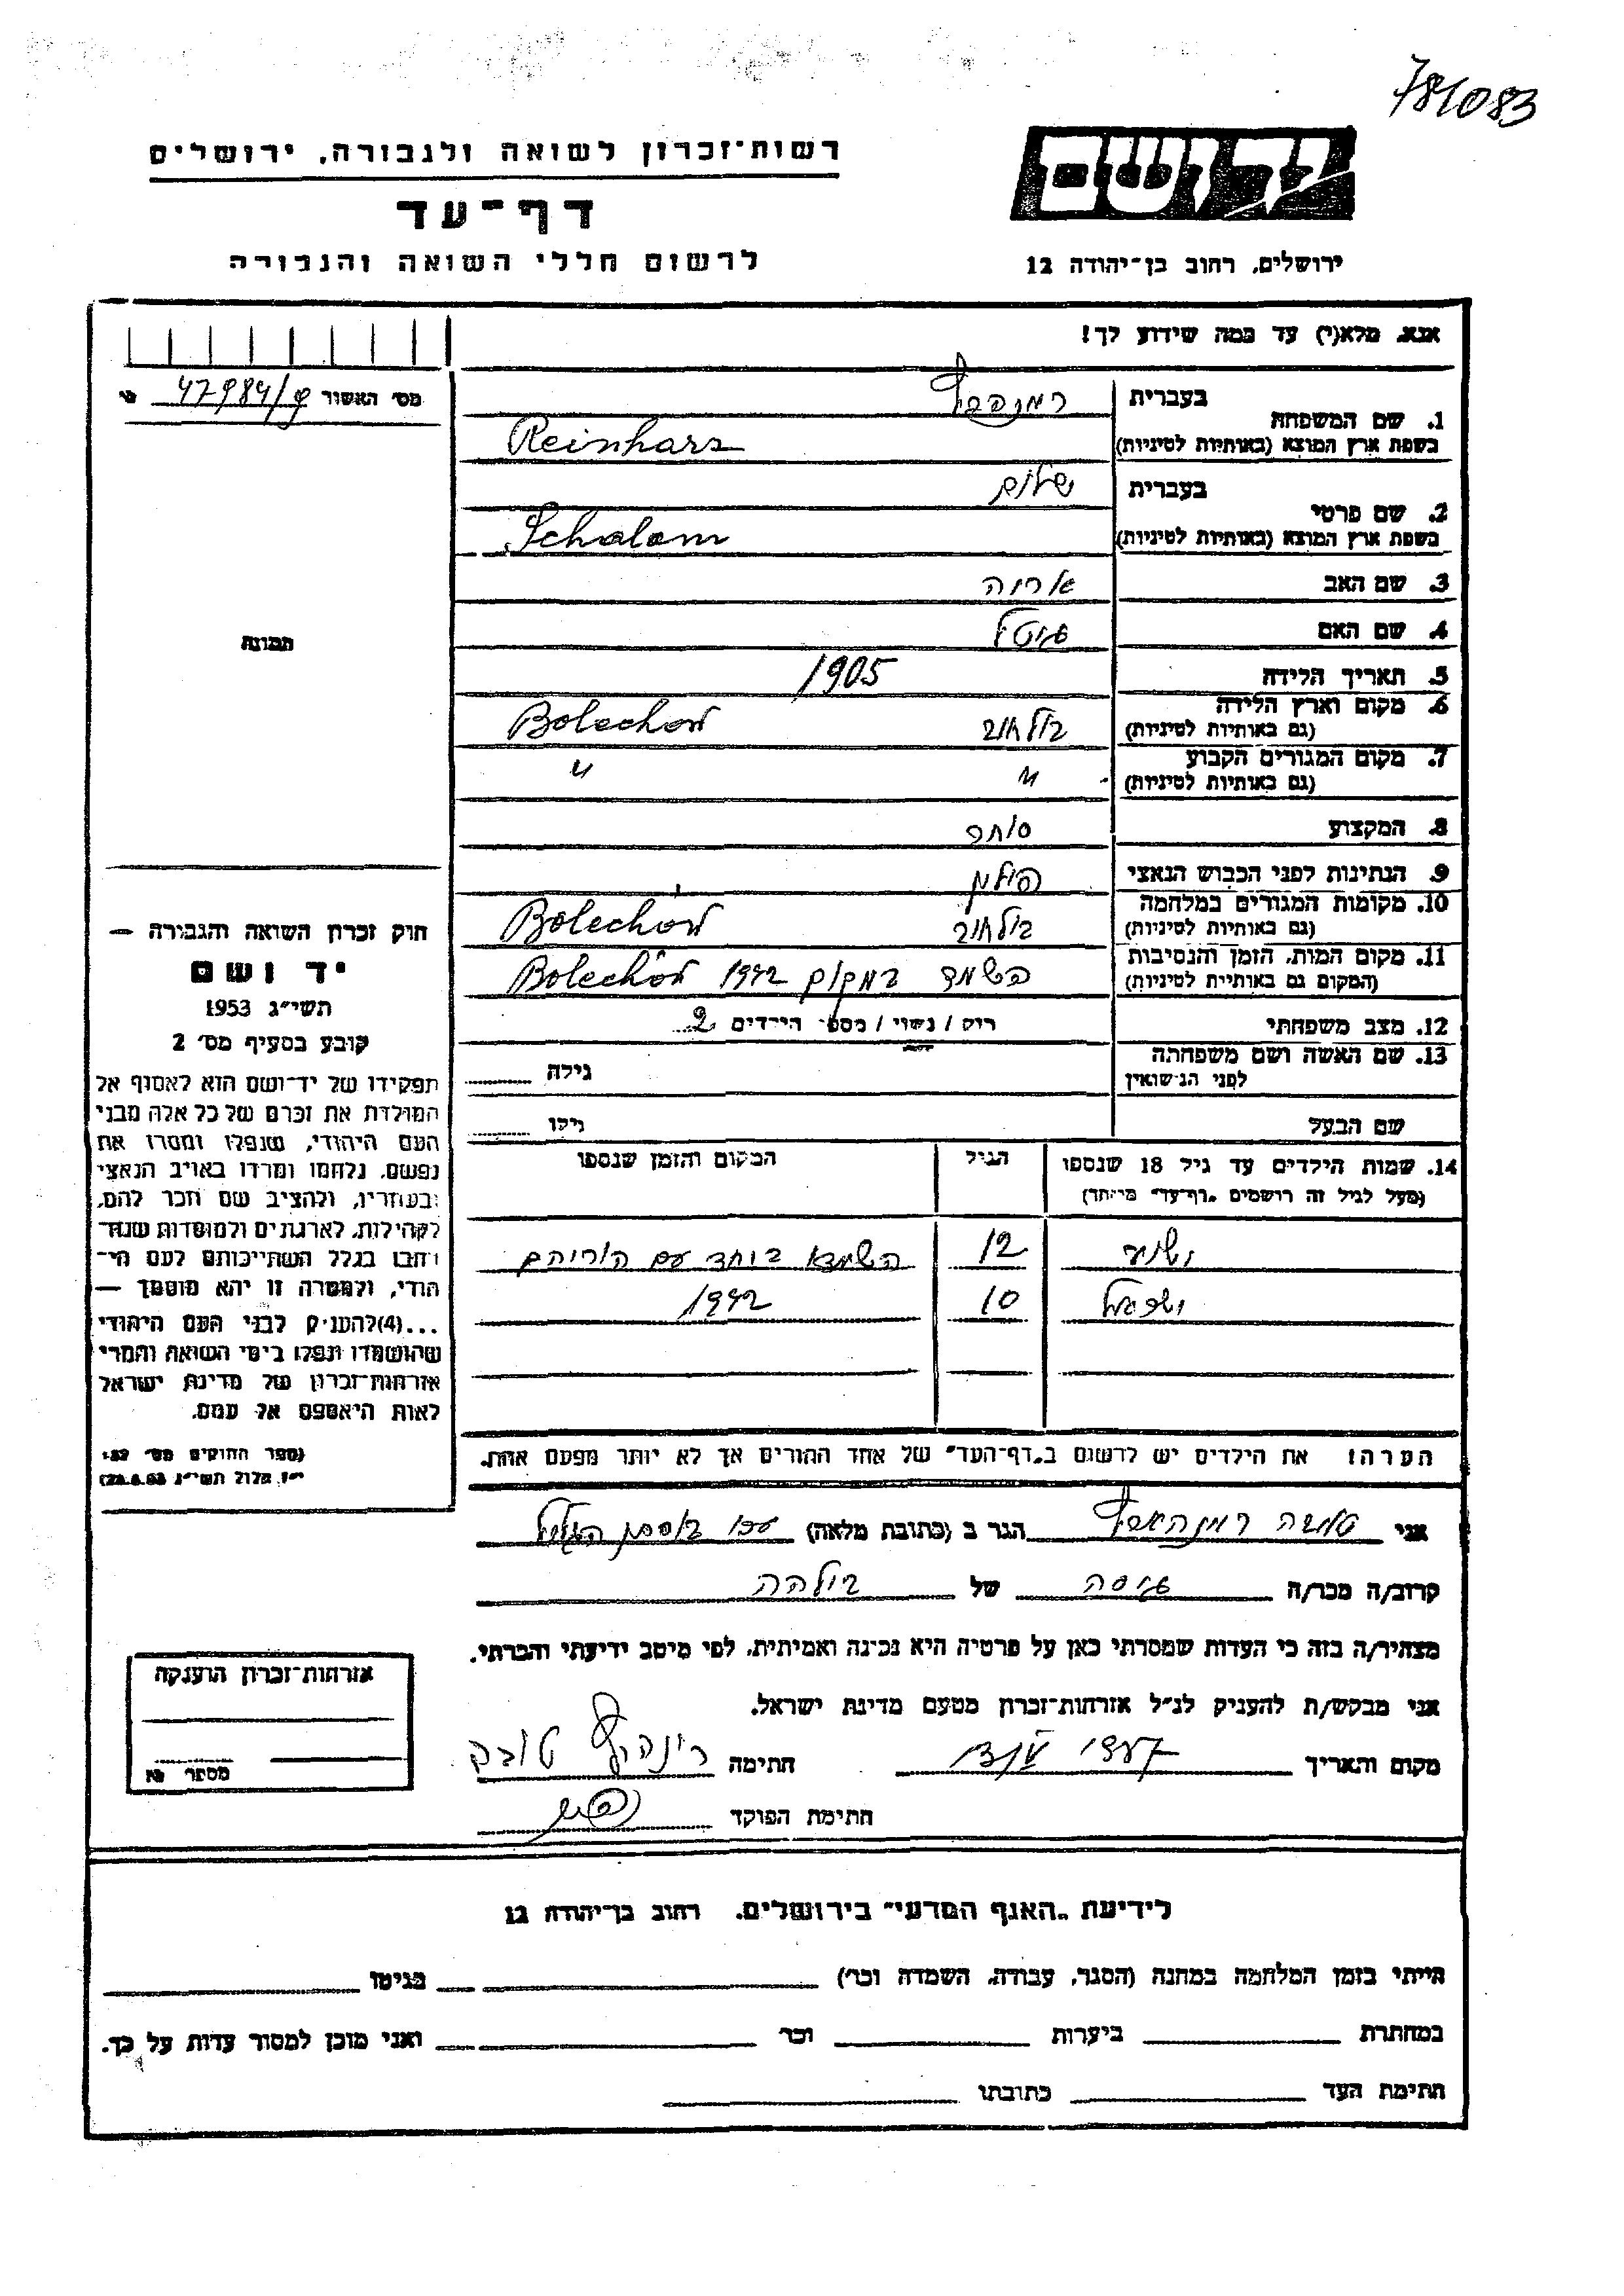 781083
יד ושם
רשות־זכרון לשואה ולגבורה, ירושלים
דף־עד
לרשום חללי השואה והגבורה
ירושלים, רחוב בן־יהודה 12
אנא, מלא(י) עד כמה שידוע לך!
מס׳ האשור 47984/
1. שם המשפחה בעברית
בשפת ארץ המוצא (באותיות לטיניות) Reinharz
2. שם פרטי בעברית שלום
בשפת ארץ המוצא (באותיות לטיניות) Schalom
3. שם האב אריה
4. שם האם גיטל
5. תאריך הלידה 1905
6. מקום וארץ הלידה (גם באותיות לטיניות) בולחוב Bolechów
7. מקום המגורים הקבוע (גם באותיות לטיניות) " "
8. המקצוע סוחר
9. הנתינות לפני הכבוש הנאצי פולין
10. מקומות המגורים במלחמה (גם באותיות לטיניות) בולחוב Bolechów
11. מקום המות, הזמן והנסיבות (המקום גם באותיות לטיניות) הושמד במקום 1942 Bolechów
12. מצב משפחתי רוק / נשוי / מספר הילדים 2
13. שם האשה ושם משפחתה לפני הנישואין גילה
שם הבעל גילו
14. שמות הילדים עד גיל 18 שנספו הגיל המקום והזמן שנספו
(מעל לגיל זה רושמים „דף־עד” מיוחד)
12 ביחד עם הוריהם
10 1942
הערה: את הילדים יש לרשום ב„דף־העד” של אחד ההורים אך לא יותר מפעם אחת.
תמונה
חוק זכרון השואה והגבורה —
יד ושם
תשי״ג 1953
קובע בסעיף מס׳ 2
תפקידו של יד־ושם הוא לאסוף אל
המולדת את זכרם של כל אלה מבני
העם היהודי, שנפלו ומסרו את
נפשם, נלחמו ומרדו באויב הנאצי
ובעוזריו, ולהציב שם וזכר להם,
לקהילות, לארגונים ולמוסדות שנח־
רבו בגלל השתייכותם לעם הי־
הודי, ולמטרה זו יהא מוסמך —
...(4) להעניק לבני העם היהודי
שהושמדו ונפלו בימי השואה והמרי
אזרחות־זכרון של מדינת ישראל
לאות היאספם אל עמם.
(ספר החוקים מס׳ 132
י״ז אלול תשי״ג 28.8.53)
אני הגר ב (כתובת מלאה)
קרוב/ה מכר/ה גיסה של
מצהיר/ה בזה כי העדות שמסרתי כאן על פרטיה היא נכונה ואמיתית, לפי מיטב ידיעתי והכרתי.
אני מבקש/ת להעניק לנ״ל אזרחות־זכרון מטעם מדינת ישראל.
מקום והאריך חתימה טובה
חתימת הפוקד
אזרחות־זכרון הוענקה
מספר
לידיעת „האגף המדעי” בירושלים, רחוב בן־יהודה 12
הייתי בזמן המלחמה במחנה (הסגר, עבודה, השמדה וכו׳) בגיטו
במחתרת ביערות וכו׳ ואני מוכן למסור עדות על כך.
חתימת העד כתובתו